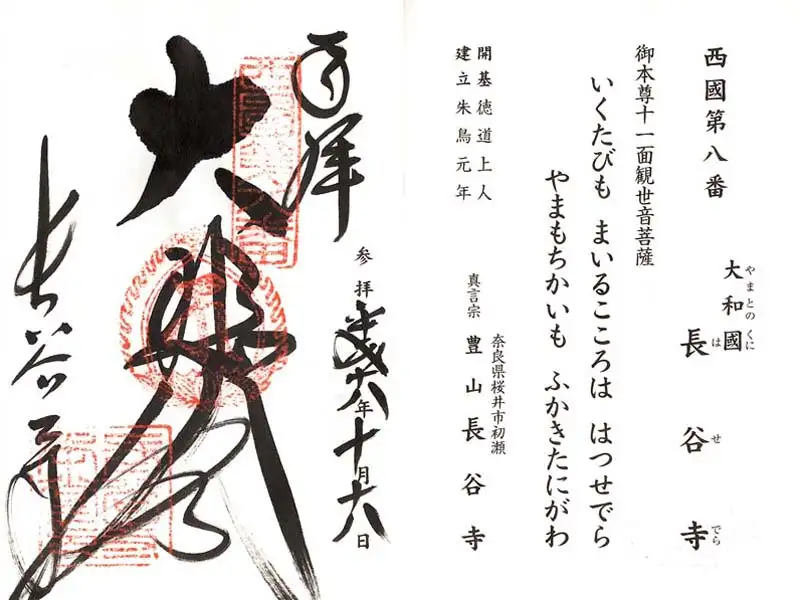 西國第八番
やまとのくに
大和國
はせでら
長谷寺
御本尊十一面観世音菩薩
いくたびも まいるこころは はつせでら
やまもちかいも ふかきたにがわ
開基徳道上人
建立朱鳥元年
奈良県桜井市初瀬
真言宗 豊山長谷寺
奉拝
参拝平成年十月十六日
大悲閣
長谷寺